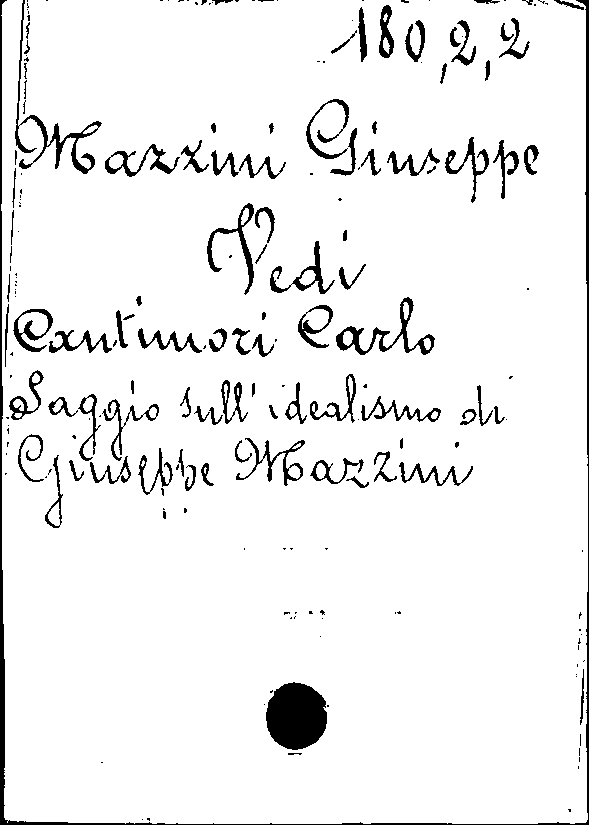 180,2,2
Mazzini Giuseppe
Vedi
Cantimori Carlo
Saggio sull'idealismo di
Giuseppe Mazzini